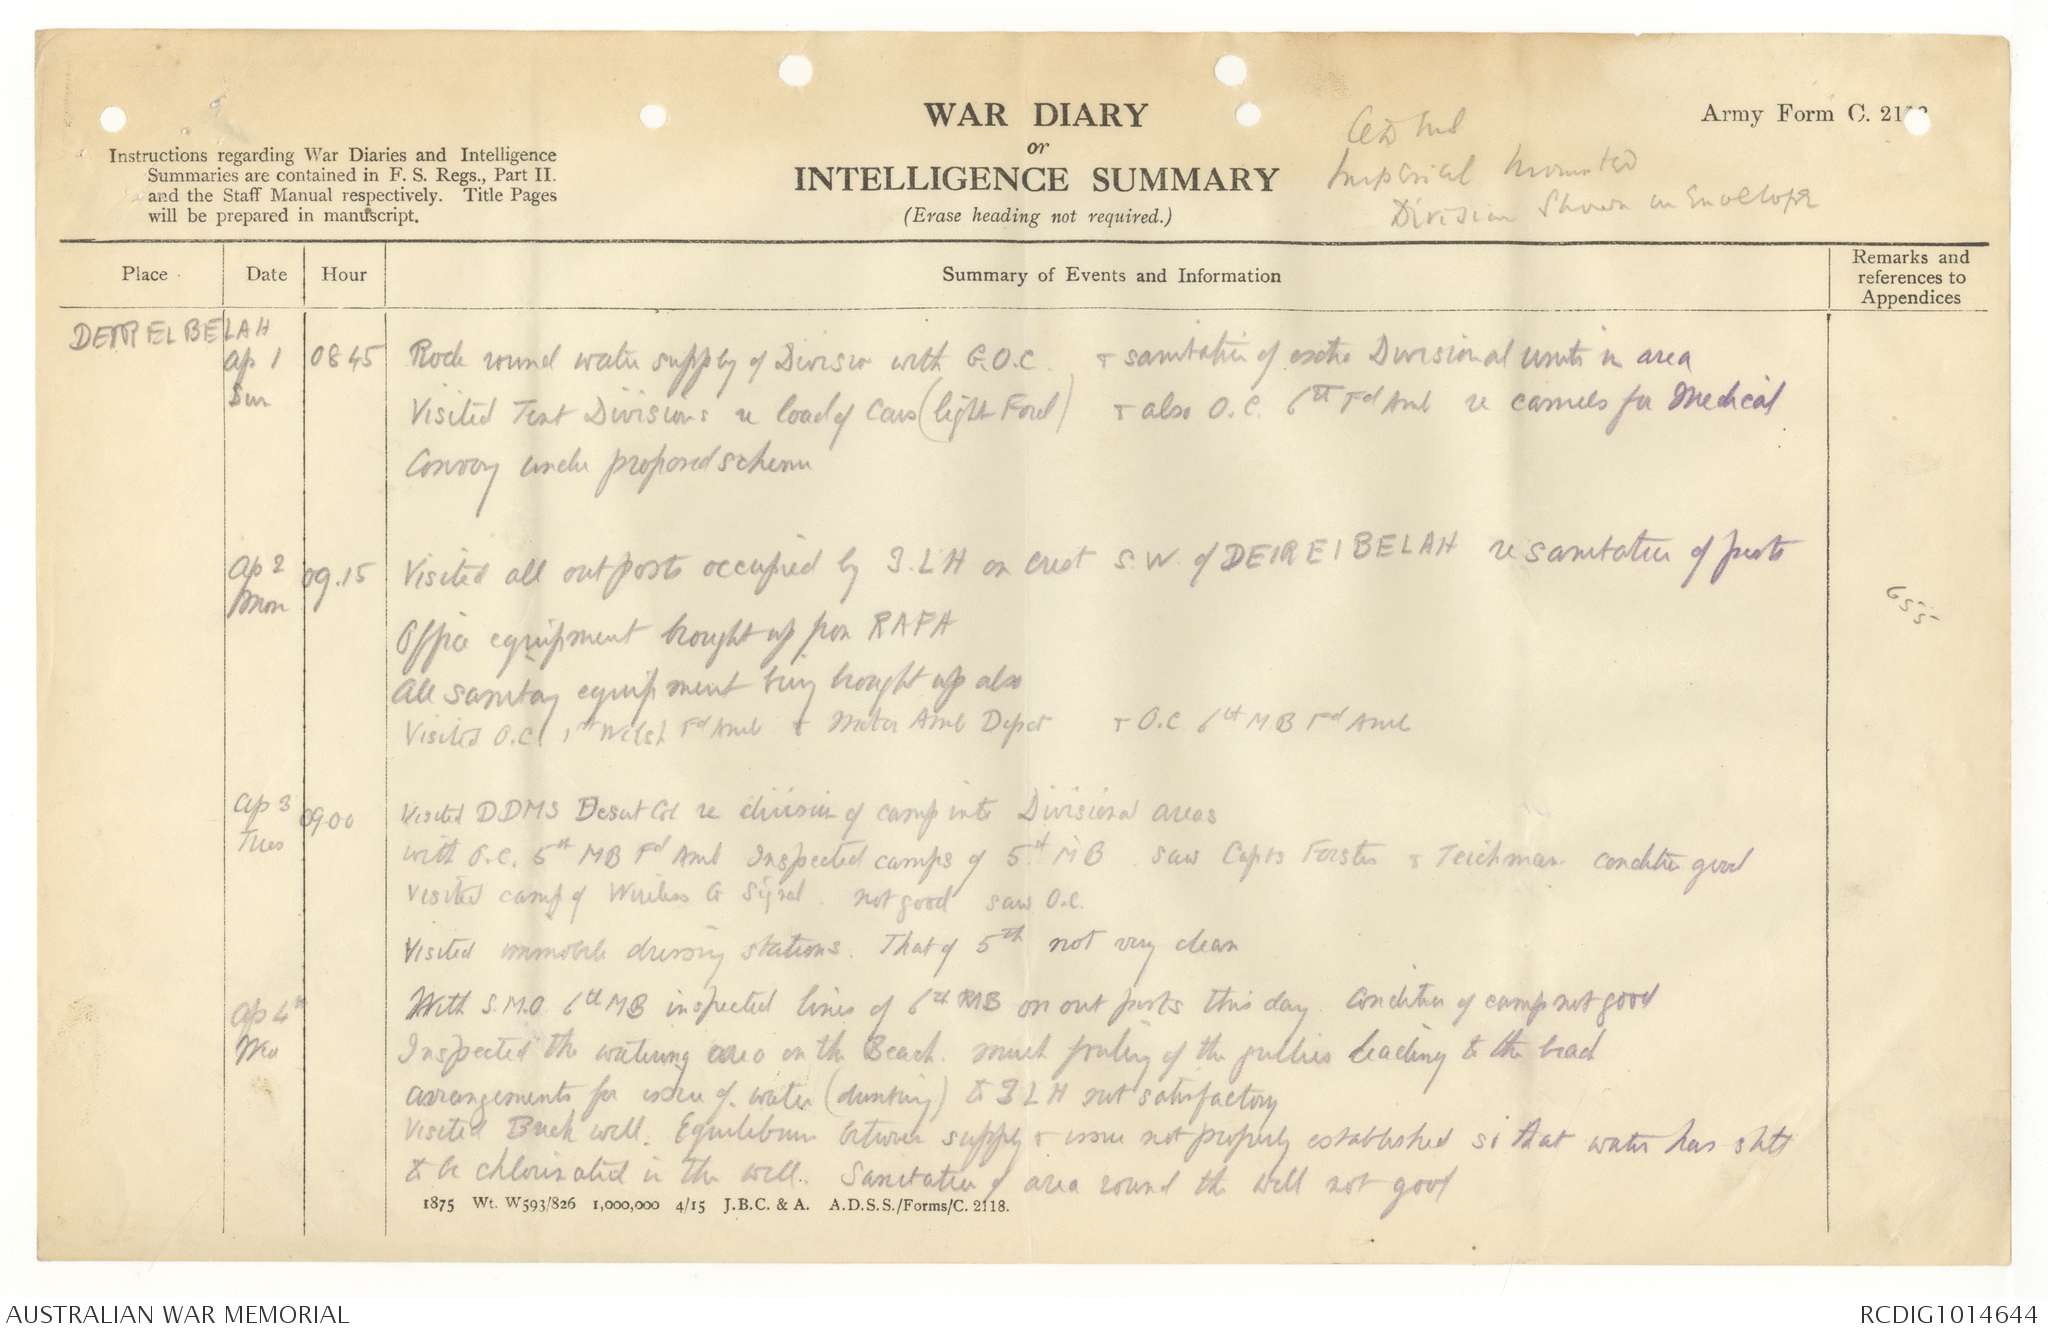 WAR DIARY
or
INTELLIGENCE SUMMARY
(Erase heading not required.)
Army Form C. 2118
Imperial Mounted
Division Shown on Envelope
Instructions regarding War Diaries and Intelligence
Summaries are contained in F. S. Regs., Part II.
and the Staff Manual respectively. Title Pages
will be prepared in manuscript.
Place
Date
Hour
Summary of Events and Information
Remarks and
references to
Appendices
DEIR EL BELAH
Ap 1
Sun
0845
Rode round water supply of Division with G.O.C. + sanitation of extra Divisional units in area
Visited Tent Divisions re load of Cars (light Ford) + also O.C. 6th Fd Amb re camels for Medical
Convoy under proposed scheme
Ap 2
Mon
09.15
Visited all outposts occupied by 3.LH on crest S.W. of DEIR El BELAH re sanitation of posts
Office equipment brought up from RAFA
All sanitary equipment being brought up also
Visited O.C. 1st Welsh Fd Amb + Motor Amb Depot + O.C 6th MB Fd Amb
655
Ap 3
Tues
0900
Visited DDMS Desert Col re division of camp into Divisional areas
with O.C. 5th MB Fd Amb Inspected camps of 5th MB. saw Capts Forster + Teichman condition good
Visited camp of Wireless & Signal. not good saw O.C.
Visited immobile dressing stations. That of 5th not very clean
Ap 4th
Wed
With S.M.O. 6th MB inspected lines of 6th MB on out posts this day. Condition of camp not good
Inspected the watering area on the Beach. much fouling of the gullies leading to the
arrangements for issue of water (drinking) to 3 LH not satisfactory
Visited Buck well. Equilibrium between supply + issue not properly established so that water has still
to be chlorinated in the well. Sanitation of area round the well not good
1875 Wt. W593/826 1,000,000 4/15 J.B.C. & A. A.D.S.S./Forms/C. 2118.
AUSTRALIAN WAR MEMORIAL
RCDIG1014644